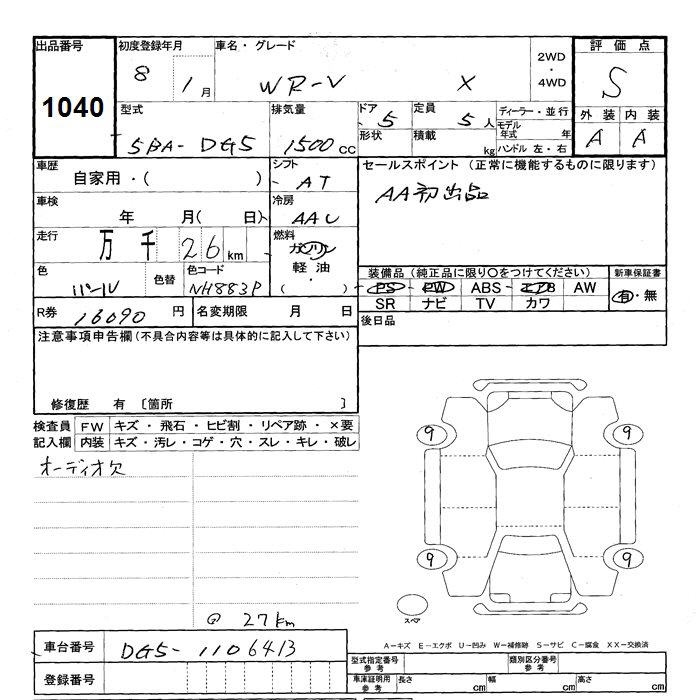 出品番号 初度登録年月 車名・グレード 評価点
1040 8 1月 WR-V X 2WD・4WD S
型式 排気量 ドア 5 定員 5人 ディーラー・並行 外装 内装
5BA-DG5 1500cc 形状 積載 kg モデル年式 年 ハンドル 左・右 A A
車歴 シフト セールスポイント(正常に機能するものに限ります)
自家用・( ) AT AA初出品
車検 冷房
年 月( 日) AAC
走行 燃料
万 千 26 km ガソリン
色 色替 色コード 軽油 装備品(純正品に限り○をつけてください) 新車保証書
パール NH883P ( ) PS PW ABS エアB AW 有・無
SR ナビ TV カワ
R券 16090円 名変期限 月 日 後日品
注意事項申告欄(不具合内容等は具体的に記入して下さい)
修復歴 有 〔箇所 〕
検査員 FW キズ・飛石・ヒビ割・リペア跡・×要
記入欄 内装 キズ・汚レ・コゲ・穴・スレ・キレ・破レ
オーディオ欠
9 9
9 9
スペア
@ 27km
A-キズ E-エクボ U-凹み W-補修跡 S-サビ C-腐食 XX-交換済
車台番号 DG5-1106413
型式指定番号 参考 類別区分番号 参考
登録番号 車庫証明用 参考 長さ cm 幅 cm 高さ cm